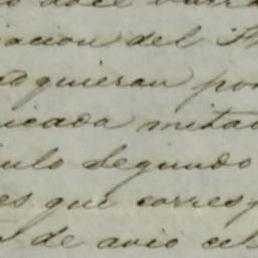 acion del
adquieran por
icada mitad
ulo Segundo
es que corres
de avio cel